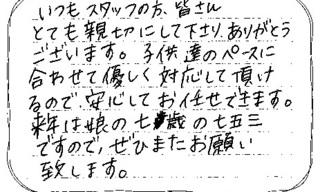 いつもスタッフの方、皆さん
とても親切にして下さり、ありがとう
ございます。子供達のペースに
合わせて優しく対応して頂け
るので、安心してお任せできます。
来年は娘の七歳の七五三
ですので、ぜひまたお願い
致します。